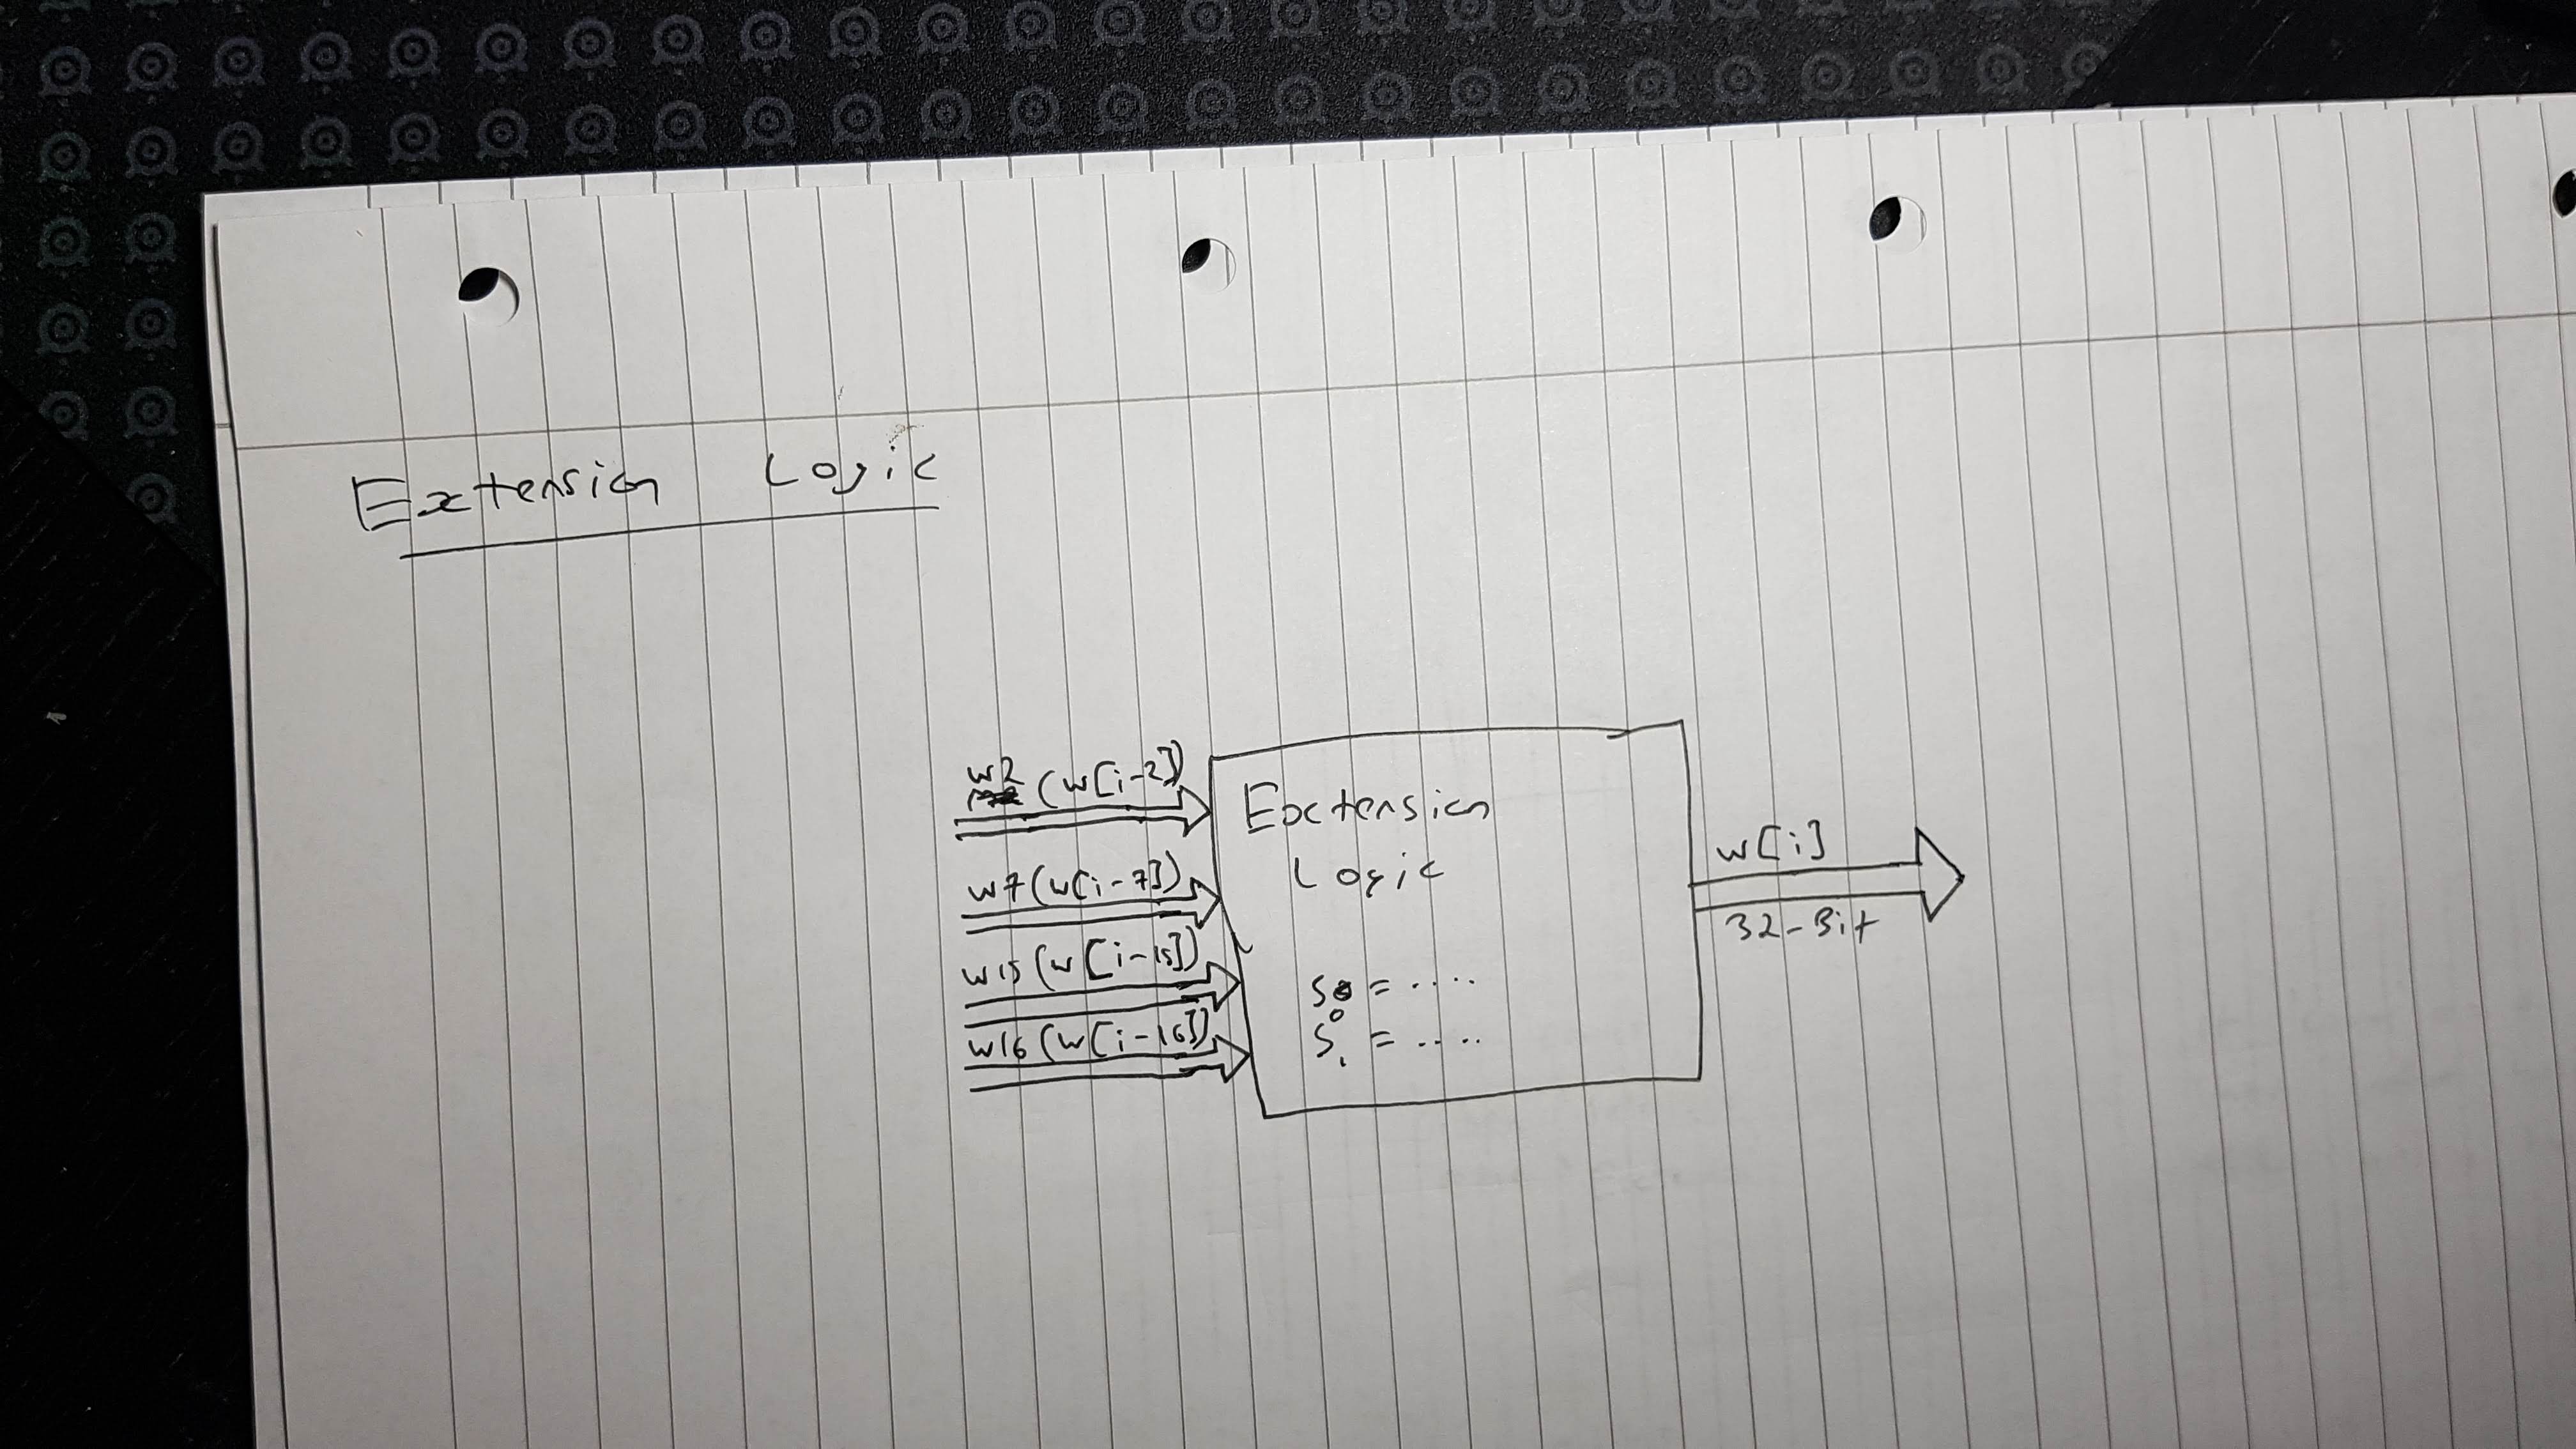 Extension Logic
w2 (w[i-2])
w7 (w[i-7])
w15 (w[i-15])
w16 (w[i-16])
Extension
Logic
S0 = ....
S1 = ....
w[i]
32-Bit